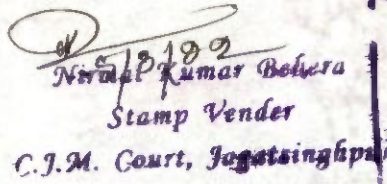 Nirmal Kumar Behera
Stamp Vender
C.J.M. Court, Jagatsinghpu